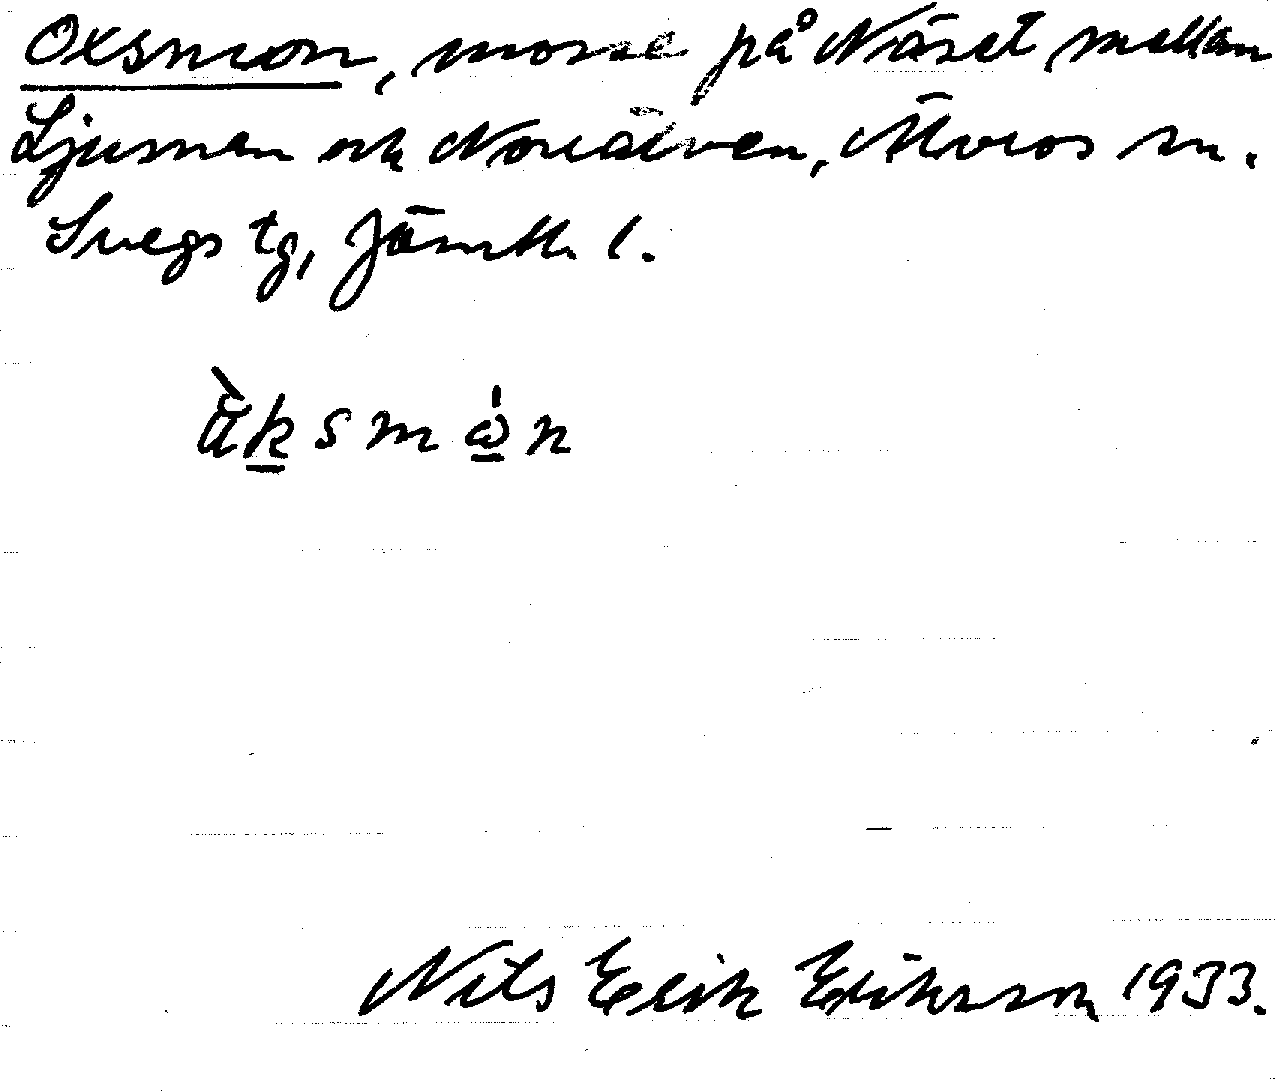 Oxsmon, mosse på Näset mellan
Ljusnan och Norrälven, Älvros sn.
Svegs tg, Jämtl. l.
Nils Erik Eriksson 1933.